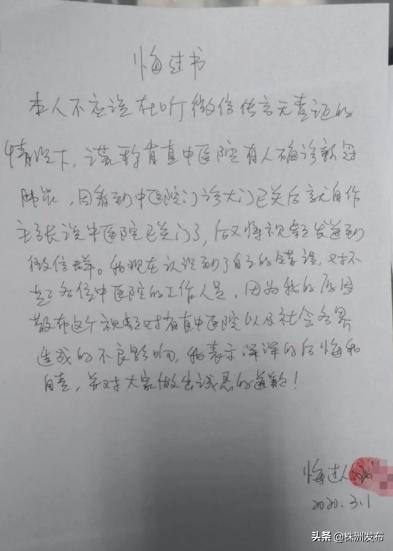 悔过书
本人不应该在听微信传言无查证的
情况下，谎称有直中医院有人确诊新冠
肺炎，因看到中医院门诊大门已关后就自作
主张说中医院已关门了，后又将视频发送到
微信群。我现在认识到了自己的错误，对不
起各位中医院的工作人员，因为我的原因
散布这个视频对有直中医院以及社会各界
造成的不良影响，我表示深深的后悔和
自责，并对大家做出诚恳的道歉！
悔过人
2020.3.1
头条 @株洲发布